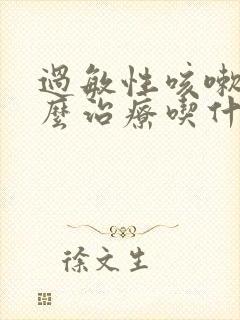 過敏性咳嗽
麼治療喫什
徐文生